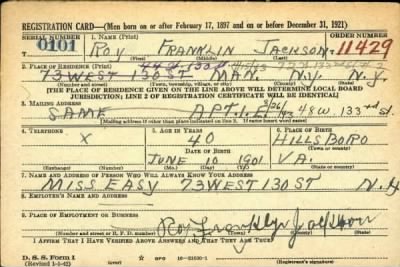 REGISTRATION CARD—(Men born on or after February 17, 1897 and on or before December 31, 1921)
SERIAL NUMBER 1. NAME (Print) ORDER NUMBER
0101 ROY FRANKLIN JACKSON 11429
(First) (Middle) (Last)
2. PLACE OF RESIDENCE (Print)
73 WEST 130 ST MAN. N.Y. N.Y.
(Number and street) (Town, township, village, or city) (County) (State)
[THE PLACE OF RESIDENCE GIVEN ON THE LINE ABOVE WILL DETERMINE LOCAL BOARD
JURISDICTION; LINE 2 OF REGISTRATION CERTIFICATE WILL BE IDENTICAL]
3. MAILING ADDRESS
SAME APT. 1. 48 W. 133rd St.
[Mailing address if other than place indicated on line 2. If same insert word same]
4. TELEPHONE 5. AGE IN YEARS 6. PLACE OF BIRTH
X 40 HILLSBORO
DATE OF BIRTH (Town or county)
JUNE 10 1901 VA.
(Exchange) (Number) (Mo.) (Day) (Yr.) (State or country)
7. NAME AND ADDRESS OF PERSON WHO WILL ALWAYS KNOW YOUR ADDRESS
MISS EASY 73 WEST 130 ST N.Y
8. EMPLOYER'S NAME AND ADDRESS
9. PLACE OF EMPLOYMENT OR BUSINESS
(Number and street or R. F. D. number) (Town) (County) (State)
I AFFIRM THAT I HAVE VERIFIED ABOVE ANSWERS AND THAT THEY ARE TRUE.
D. S. S. Form 1
(Revised 1-1-42) GPO 16—21630-1 (Registrant's signature)